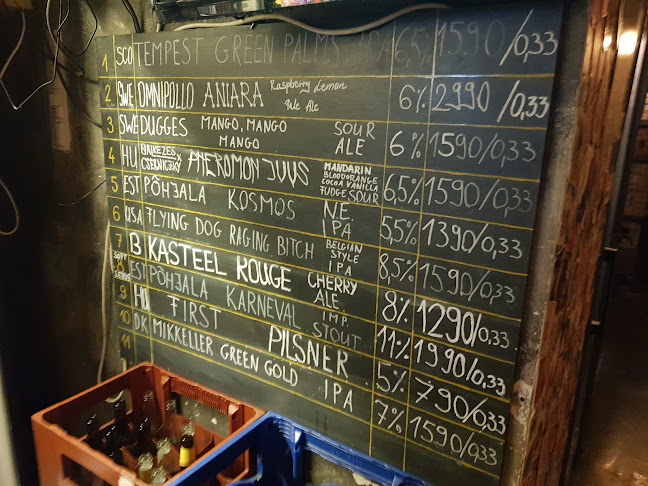 1 SCO TEMPEST GREEN PALMS IPA 6,5% 1590/0,33
2 SWE OMNIPOLLO ANIARA Raspberry Lemon 6% 2990/0,33
Ale
3 SWE DUGGES MANGO, MANGO SOUR 6% 1590/0,33
MANGO ALE
4 HU MANDARIN 6,5% 1590/0,33
BLOODORANGE
COCOA VANILLA
FUDGE SOUR
5 EST PÕHJALA KOSMOS NE. 5,5% 1390/0,33
IPA
6 USA FLYING DOG RAGING BITCH BELGIAN 8,5% 1590/0,33
STYLE
IPA
7 B KASTEEL ROUGE CHERRY 8% 1290/0,33
ALE.
8 EST PÕHJALA KARNEVAL IMP. 11% 1990/0,33
STOUT
9 HU FIRST PILSNER 5% 790/0,33
10 DK MIKKELLER GREEN GOLD IPA 7% 1590/0,33
11